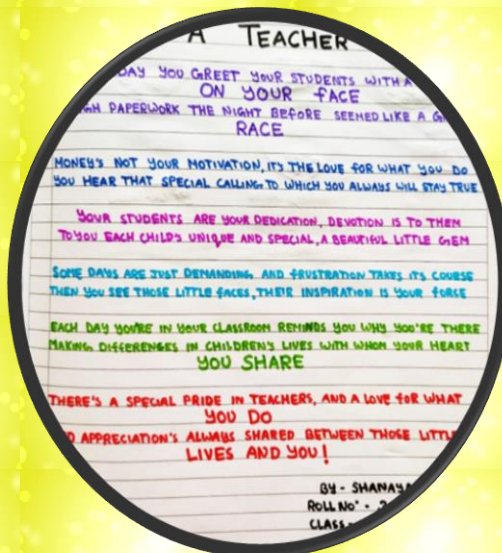 A TEACHER
DAY YOU GREET YOUR STUDENTS WITH A
ON YOUR FACE
PAPERWORK THE NIGHT BEFORE SEEMED LIKE A
RACE
MONEY'S NOT YOUR MOTIVATION, IT'S THE LOVE FOR WHAT YOU DO
YOU HEAR THAT SPECIAL CALLING, TO WHICH YOU ALWAYS WILL STAY TRUE
YOUR STUDENTS ARE YOUR DEDICATION, DEVOTION IS TO THEM
TO YOU EACH CHILD'S UNIQUE AND SPECIAL, A BEAUTIFUL LITTLE GEM
SOME DAYS ARE JUST DEMANDING, AND FRUSTRATION TAKES ITS COURSE
THEN YOU SEE THOSE LITTLE FACES, THEIR INSPIRATION IS YOUR FORCE
EACH DAY YOU'RE IN YOUR CLASSROOM REMINDS YOU WHY YOU'RE THERE
MAKING DIFFERENCES IN CHILDREN'S LIVES WITH WHOM YOUR HEART
YOU SHARE
THERE'S A SPECIAL PRIDE IN TEACHERS, AND A LOVE FOR WHAT
YOU DO
APPRECIATION'S ALWAYS SHARED BETWEEN THOSE LITTL
LIVES AND YOU!
BY - SHANAYA
ROLL NO' -
CLASS -